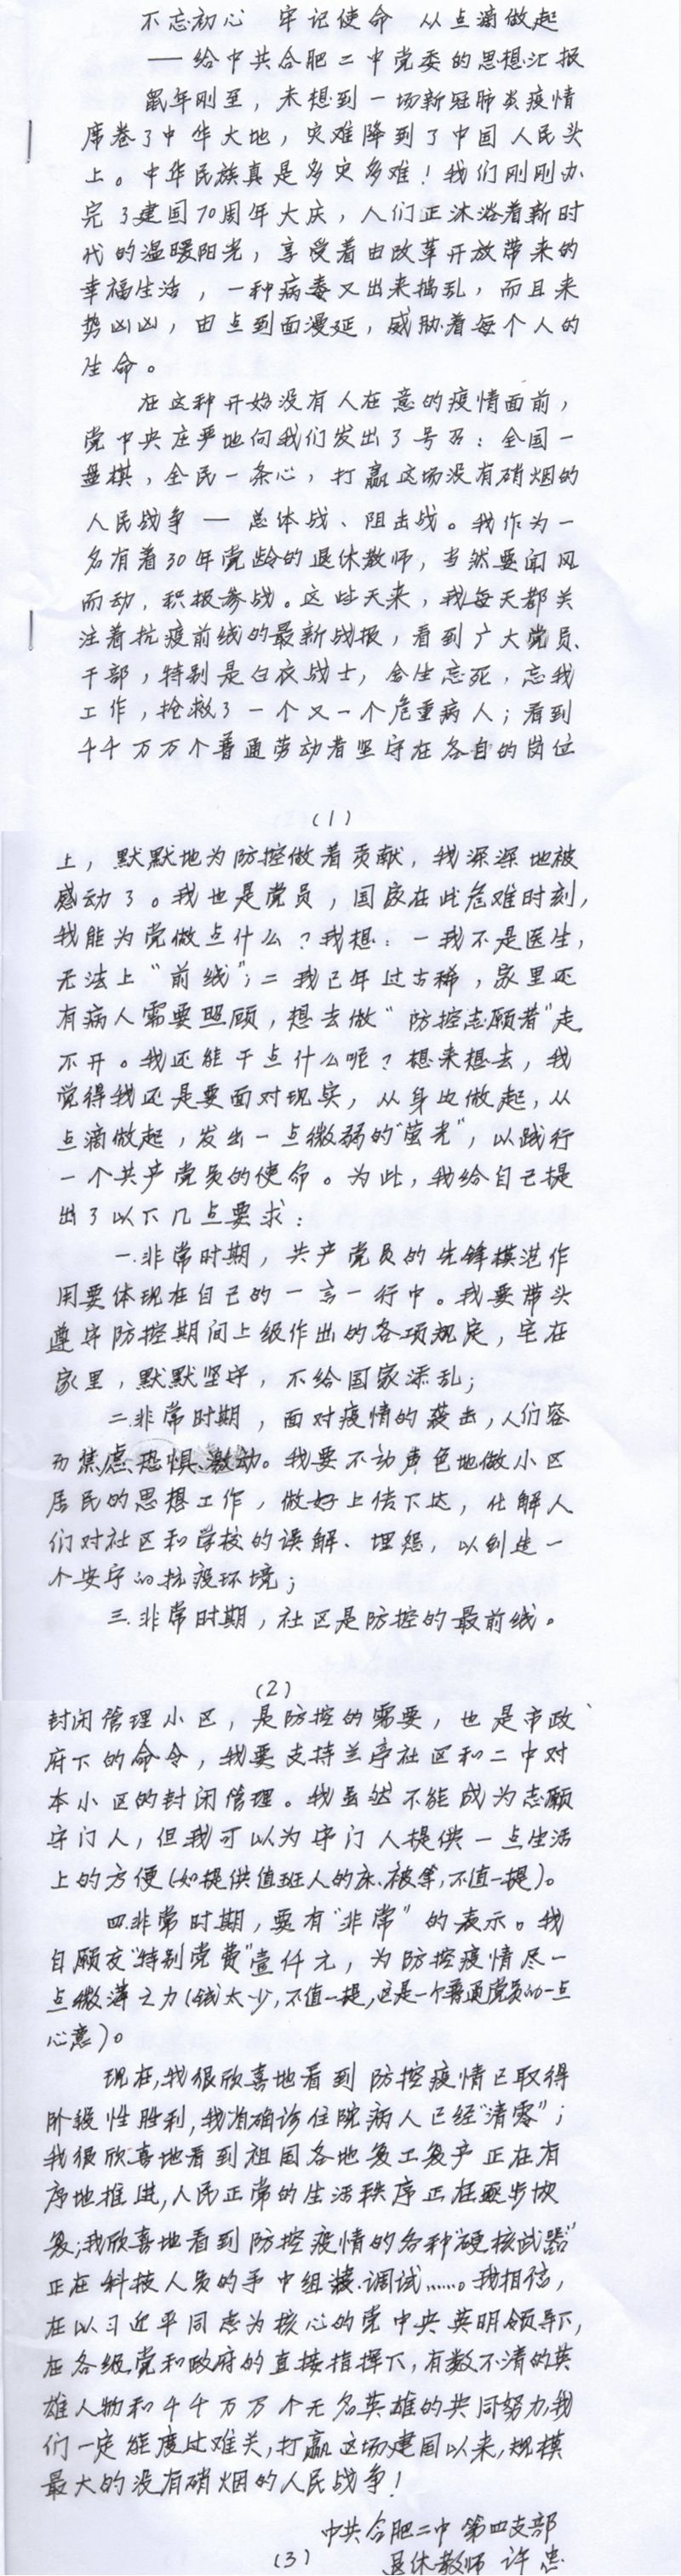 不忘初心 牢记使命 从点滴做起
——给中共合肥二中党委的思想汇报
鼠年刚至，未想到一场新冠肺炎疫情
席卷了中华大地，灾难降到了中国人民头
上。中华民族真是多灾多难！我们刚刚办
完了建国70周年大庆，人们正沐浴着新时
代的温暖阳光，享受着由改革开放带来的
幸福生活，一种病毒又出来捣乱，而且来
势凶凶，由点到面漫延，威胁着每个人的
生命。
在这种开始没有人在意的疫情面前，
党中央庄严地向我们发出了号召：全国一
盘棋，全民一条心，打赢这场没有硝烟的
人民战争——总体战、阻击战。我作为一
名有着30年党龄的退休教师，当然要闻风
而动，积极参战。这些天来，我每天都关
注着抗疫前线的最新战报，看到广大党员、
干部，特别是白衣战士，舍生忘死，忘我
工作，抢救了一个又一个危重病人；看到
千千万万个普通劳动者坚守在各自的岗位
（1）
上，默默地为防控做着贡献，我深深地被
感动了。我也是党员，国家在此危难时刻，
我能为党做点什么？我想：一我不是医生，
无法上“前线”；二我已年过古稀，家里还
有病人需要照顾，想去做“防控志愿者”走
不开。我还能干点什么呢？想来想去，我
觉得我还是要面对现实，从身边做起，从
点滴做起，发出一点微弱的“萤光”，以践行
一个共产党员的使命。为此，我给自己提
出了以下几点要求：
一.非常时期，共产党员的先锋模范作
用要体现在自己的一言一行中。我要带头
遵守防控期间上级作出的各项规定，宅在
家里，默默坚守，不给国家添乱；
二.非常时期，面对疫情的袭击，人们容
易焦虑、恐惧、激动。我要不动声色地做小区
居民的思想工作，做好上传下达，化解人
们对社区和学校的误解、埋怨，以创造一
个安宁的抗疫环境；
三.非常时期，社区是防控的最前线。
（2）
封闭管理小区，是防控的需要，也是市政
府下的命令，我要支持兰亭社区和二中对
本小区的封闭管理。我虽然不能成为志愿
守门人，但我可以为守门人提供一点生活
上的方便（如提供值班人的床、被等，不值一提）。
四.非常时期，要有“非常”的表示。我
自愿交“特别党费”壹仟元，为防控疫情尽一
点微薄之力（钱太少，不值一提，这是一个普通党员的一点
心意）。
现在，我很欣喜地看到防控疫情已取得
阶段性胜利，我省确诊住院病人已经“清零”；
我很欣喜地看到祖国各地复工复产正在有
序地推进，人民正常的生活秩序正在逐步恢
复；我欣喜地看到防控疫情的各种“硬核武器”
正在科技人员的手中组装、调试……。我相信，
在以习近平同志为核心的党中央英明领导下，
在各级党和政府的直接指挥下，有数不清的英
雄人物和千千万万个无名英雄的共同努力，我
们一定能度过难关，打赢这场建国以来，规模
最大的没有硝烟的人民战争！
中共合肥二中第四支部
（3） 退休教师 许忠